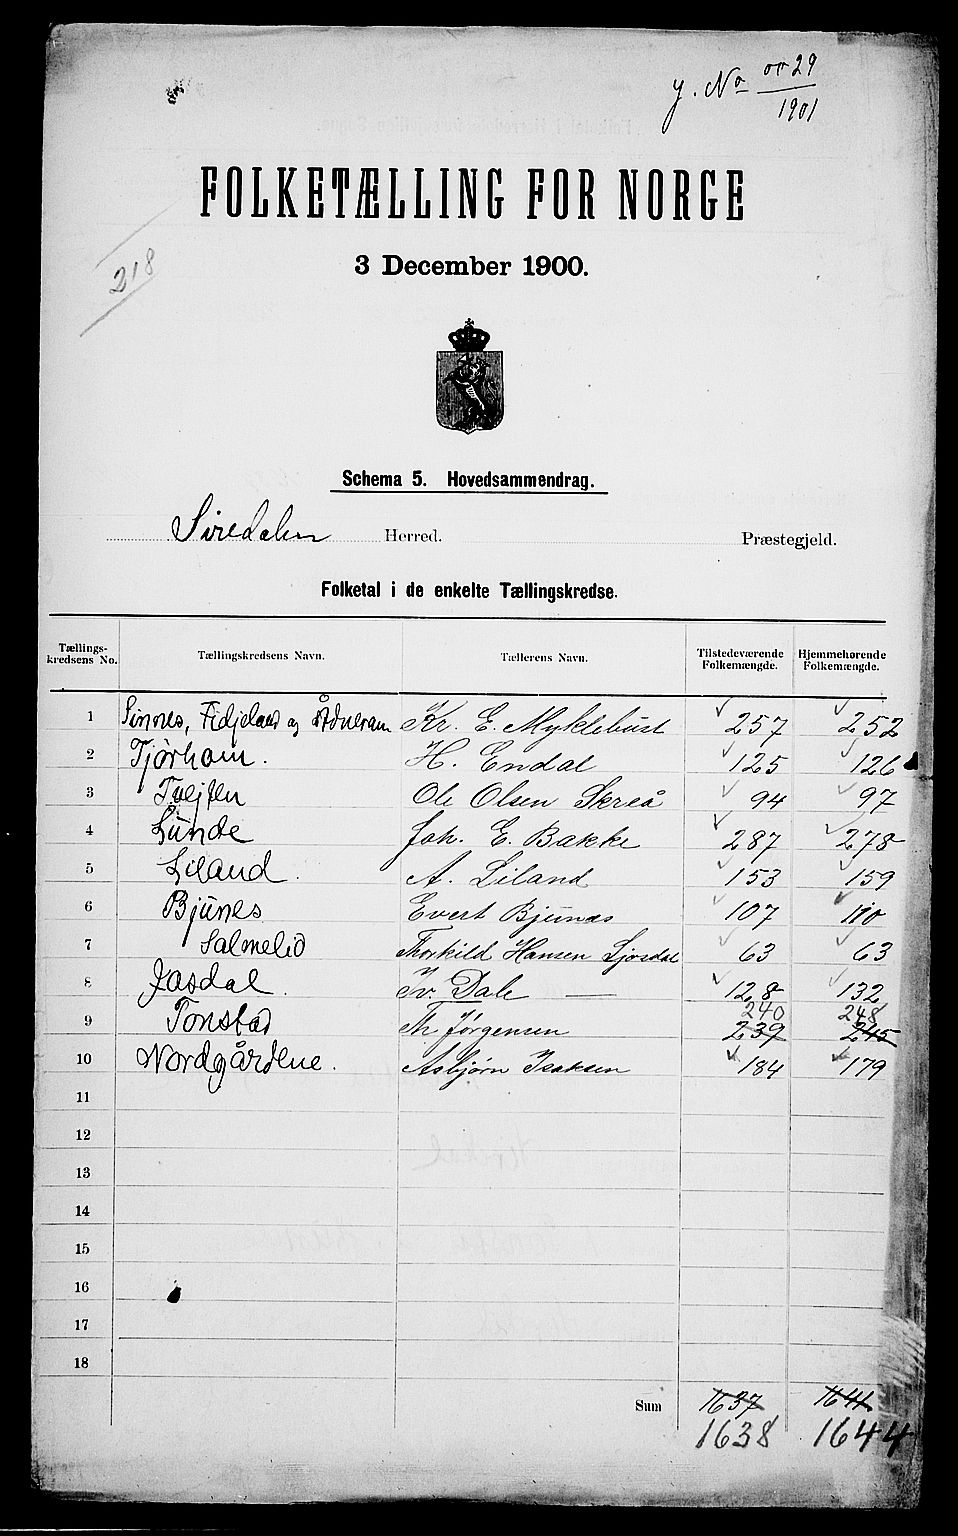 J. No 0029
1901
FOLKETÆLLING FOR NORGE
3 December 1900.
218
Schema 5. Hovedsammendrag.
Siredalen Herred. Præstegjeld.
Folketal i de enkelte Tællingskredse.
Tællings-kredsens No. Tællingskredsens Navn. Tællerens Navn. Tilstedeværende Folkemængde. Hjemmehørende Folkemængde.
1 Sinnes, Fidjeland og Ådneram Kr. E. Myklebust 257 252
2 Tjørhom. H. Endal 125 126
3 Tvejten Ole Olsen Skreå 94 97
4 Lunde Joh. E. Bakke 287 278
5 Liland. A. Liland 153 159
6 Bjunes Evert Bjunes 107 110
7 Salmelid Thorkild Hansen Sjosdal 63 63
8 Josdal. Iv. Dale — 128 132
240 248
9 Tonstad Th. Jørgensen 239 245
10 Nordgårdene. Asbjørn Isaksen 184 179
11
12
13
14
15
16
17
18
Sum 1637 1641
1638 1644